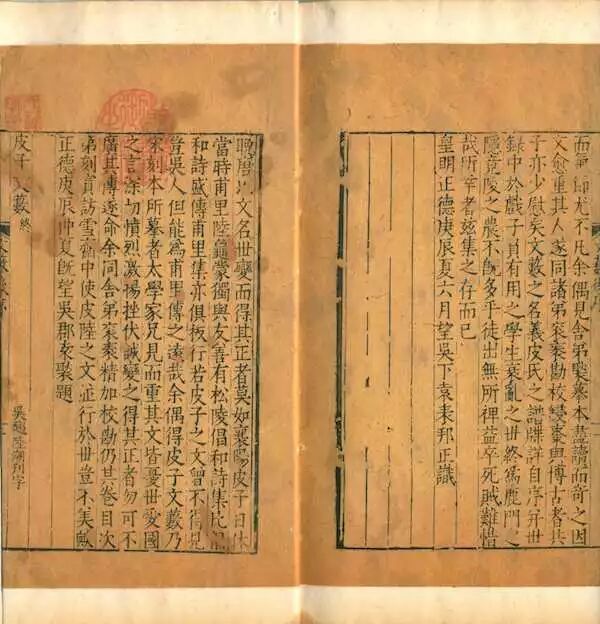 而爭仰尤不凡余偶見舍弟褧摹本讀而奇之因
文愈重其人遂同諸弟勘校棗與博古者共
予亦少慰矣文藪之名義皮氏之譜牒詳自序并世
錄中於戲子負有用之學生衰亂之世終為鹿門之
隱竟陵之農不旣多乎徒出無所裨益卒死賊難惜
哉所幸者茲集之存而已
皇明正德庚辰夏六月望吳下袁表邦正識
晚唐以文名世變而得其正者莫如襄陽皮子日休
當時甫里陸龜蒙獨與友善有松陵倡和詩集
和詩盛傳甫里集亦俱板行若皮子之文曾不得見
豈吳人但能為甫里傳之遠哉余偶得皮子文藪乃
宋刻本所摹者太學家兄見而重其文皆憂世愛國
之言切憤烈激揚挫伏誠變之得其正者勿可不
廣其傳遂命余同舍弟精加校勘仍其卷目次
弟刻寘訪雪齋中使皮陸之文並行於世豈不美歟
正德庚辰仲夏旣望吳郡袁褧題
吳趨陸潮刊字
皮子文藪終